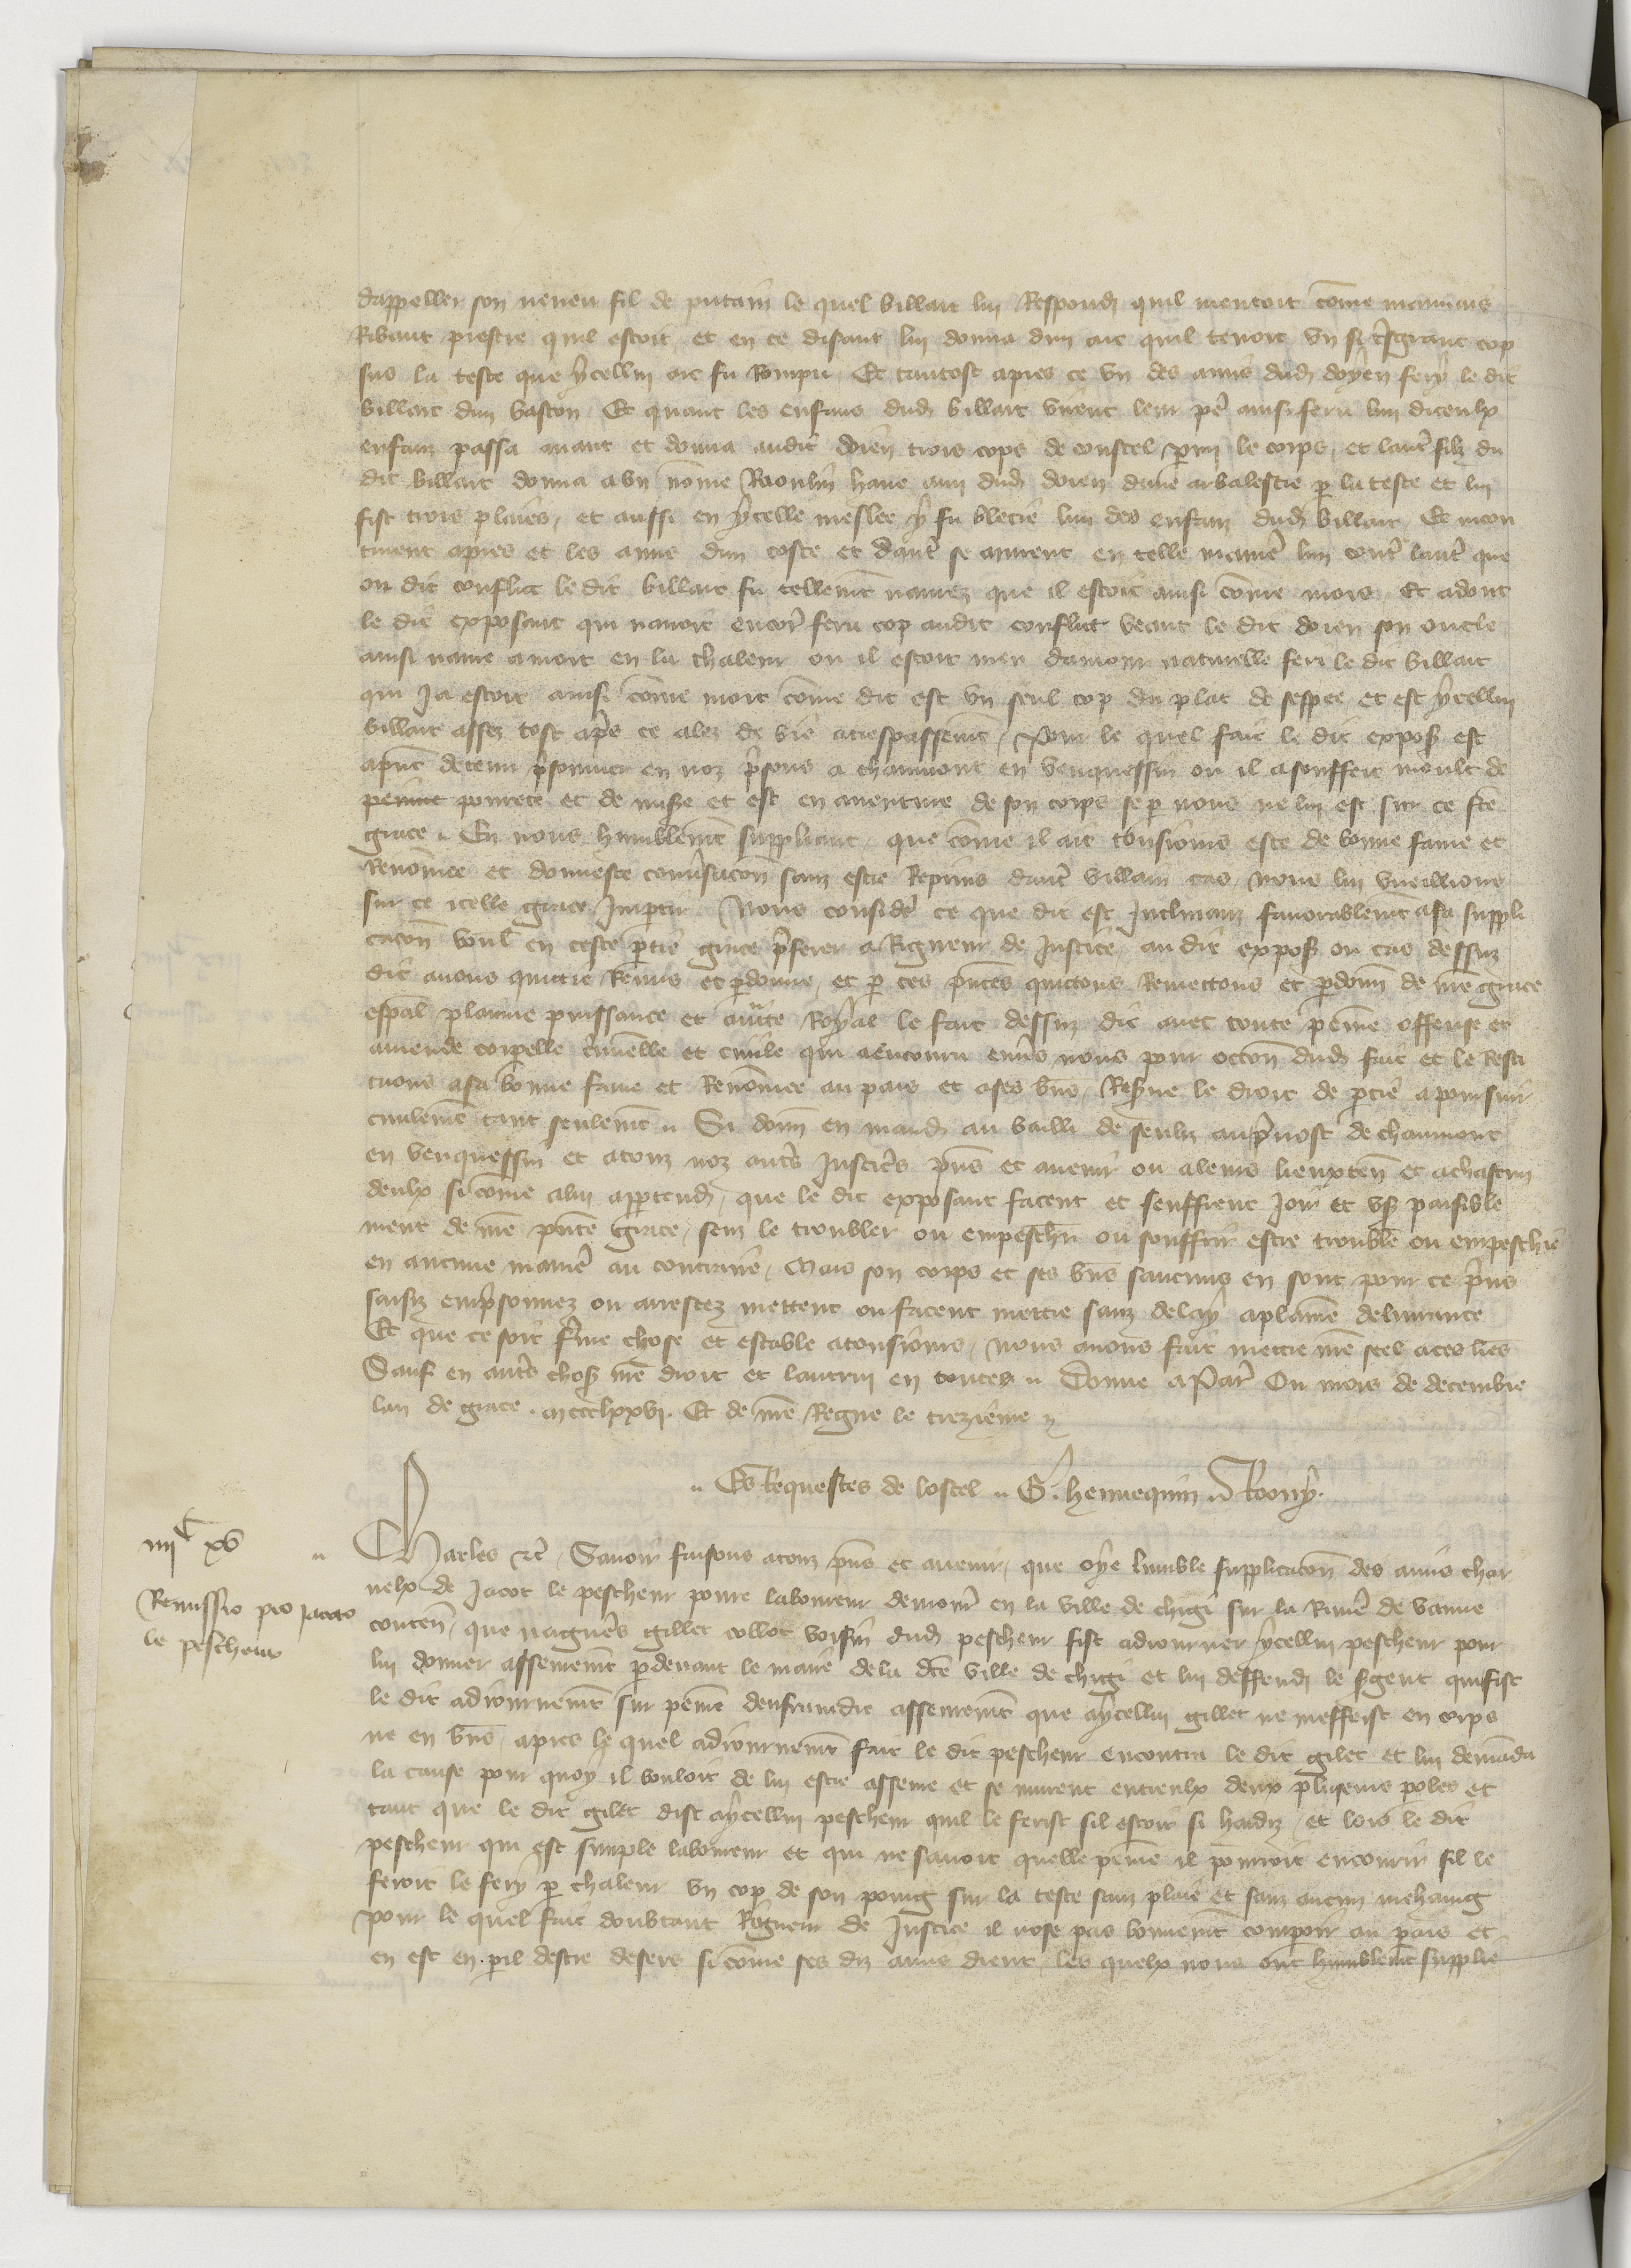 dappeller son neveu fil de putain le quel billart lui Respondi quil mentoit cōme mauuais
Ribaut prestre quil estoit et en ce disant lui donna dun arc quil tenoit vn si tresgrant cop
sus la teste que ycellui arc fu Rompu Et tantost apres ce vn des amis dud doyen fery le dit
billart dun baston Et quant les enfans dud billart virent leur pe᷑ ainsi feru lun diceulx
enfanz passa auant et donna audit doien trois cops de coustel p̄mi le corps et laut᷑ filz du
dit billart donna a vn nōme Raoulin haue ami dud doien dune arbalestre p̄ la teste et lui
fist trois plaies, et aussi en ycelle meslee y fu blecie lun des enfanz dud billart Et incon
tinent apres et les amis dun coste et daut᷑ se murent en telle manie᷑ lun cont᷑ laut᷑ que
ou dit conflict le dit billart fu tellemt̄ naurez que il estoit ainsi cōme mors Et adont
le dit exposant qui nauoit encor᷑ feru cop audit conflict veant le dit doien son oncle
ainsi naure a mort en la chaleur ou il estoit meu damour naturelle feri le dit billart
qui ja estoit ainsi cōme mort cōme dit est vn seul cop du plat de sespee et est ycellui
billart assez tost apr̄s ce alez de vie a trespassemt̄, Pour le quel fait le dit expos est
apn̄t detenu p̄sonnier en noz p̄sons a chaumont en veuquessin ou il a souffert moult de
peinne pourete et de mis᷑e et est en auenture de son corps se p̄ nous ne lui est sur ce fc̄e
grace .. En nous humblemt̄ suppliant, que cōme il ait tousiours este de bonne fame et
Renōmee et donneste conu᷑sacōn sanz estre Repriins daut᷑ villain cas, nous lui vueillions
sur ce icelle grace Impartir Nous consider᷑ ce que dit est Inclinanz fauorablemt̄ a sa suppli
cacōn voul en ceste p̄tie grace p̄ferer a Rigueur de Justice au dit expos ou cas dessuz
dit auons quittie Remis et p̄donne, et p̄ ces pn̄tes quictons Remettons et p̄donn̄ de nr̄e grace
esp̄al plainne puissance et auctc̄te Royal le fait dessuz dit auec toute peinne offense et
amende corporelle c᷑iminelle et ciuile qui a encouru enu᷑s nous pour occōn dud fait et le Resti
tuons a sa bonne fame et Renōmee au pais et a ses bn̄s, Res᷑ue le droit de p̄tie a poursuir
ciuilemt̄ tant seulemt̄ .. Si donn̄ en mand au bailli de senliz au p̄uost de chaumont
en veuquessin et a touz noz aut᷑s Justic᷑s pn̄s et auenir ou a leurs lieuxten̄ et a chascun
deulx si cōme a lui app̄tendr, que le dit exposant facent et seuffrent Joir et vs᷑ paisible
ment de nr̄e pn̄te grace, senz le troubler ou empeschier ou souffrir estre trouble ou empeschie
en aucune manie᷑ au contraire, Mais son corps et ses bn̄s saucuns en sont pour ce p̄ns
saisiz emp̄sonnez ou arrestez mettent ou facent mettre sanz delay a plaine deliurance
Et que ce soit f᷑me chose et estable a tousiours, Nous auons fait mettre nr̄e seel a ces lr̄es
Sauf en aut᷑s chos᷑ nr̄e droit et lautrui en toutes .. Donne a Par᷑ Ou mois de decembre
lan de grace . mccclxxvi. Et de nr̄e Regne le trezieme
.. Es Requestes de lostel .. G. hennequin .. Roony.
iiiic xv
Remissio pro jacoto
le pescheur
Charles ⁊c᷑, Sauoir faisons a touz pn̄s et auenir, que oye lumble supplicacōn des amis char
nelx de Jacot le pescheur poure laboureur demour᷑ en la ville de chigi sur la Riuie᷑ de vanne
conten̄, que nagueres gillet collot voisin dud pescheur fist adiourner ycellui pescheur pour
lui donner assermt̄ p̄ deuant le maire de la dc̄e ville de chigi et lui deffendi le s᷑gent qui fist
le dit adiournemt̄ sur peinne denfraindre assermt̄ que a ycellui gillet ne meffeist en corps
ne en bn̄s, apres le quel adiournemt̄ fait le dit pescheur encontra le dit gilet et lui demāda
la cause pour quoy il vouloit de lui estre asseure et se murent entreulx deux pluseurs poles et
tant que le dit gilet dist a ycellui pescheur quil le ferist sil estoit si hardiz, et lors le dit
pescheur qui est simple laboureur et qui ne sauoit quelle peinne il pourroit encourir sil le
feroit le fery p̄ chaleur vn cop de son poing sur la teste sanz plaie et sanz aucun mehaing
pour le quel fait doubtant Rigueur de Justice il nose pas bonnemt̄ comparoir au pais et
en est en p̄il destre desers si cōme ses diz amis dient, les quelx nous ont humblemt̄ supplie